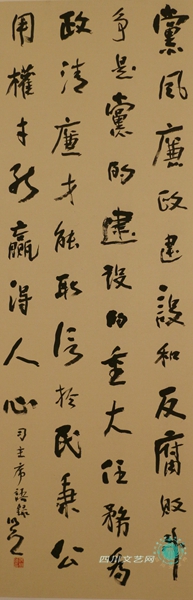 黨風廉政建設和反腐敗
争是黨的建设的重大任務為
政清廉才能取信扵民秉公
用權才能贏得人心
习主席語錄
四川文艺网